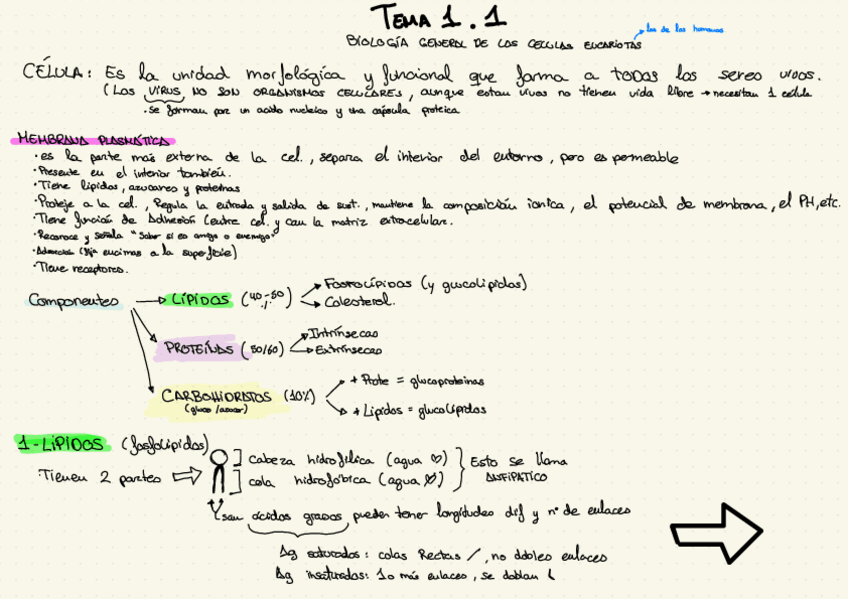 TEMA 1.1
BIOLOGÍA GENERAL DE LAS CELULAS EUCARIOTAS
las de los humanos
CÉLULA: Es la unidad morfológica y funcional que forma a TODOS los seres vivos.
(Los VIRUS NO SON ORGANISMOS CELULARES, aunque estan vivos no tienen vida libre → necesitan 1 célula
• se forman por un acido nucleico y una capsula proteica
MEMBRANA PLASMÁTICA
• es la parte más externa de la cel., separa el interior del entorno, pero es permeable
• Presente en el interior también.
• Tiene lipidos, azucares y proteinas
• Proteje a la cel., Regula la entrada y salida de sust., mantiene la composición ionica, el potencial de membrana, el PH, etc.
• Tiene función de Adhesión (entre cel. y con la matriz extracelular.
• Reconoce y señala "Saber si es amigo o enemigo"
• (fija encimas a la superficie)
• Tiene receptores.
Componentes → LÍPIDOS (40-50%) → FOSFOLÍPIDOS (y glucolipidos)
→ Colesterol.
PROTEÍNAS (50/60) → Intrínsecas
→ Extrínsecas
CARBOHIDRATOS (10%) → + Prote = glucoproteinas
(gluco/azucar) → + Lipidos = glucolípidos
1-LÍPIDOS (fosfolipidos)
• Tienen 2 partes ⇒ ] cabeza hidrofílica (agua ♡) } Esto se llama
] cola hidrofóbica (agua ♡̸) ANFIPÁTICO
son ácidos grasos pueden tener longitudes dif y nº de enlaces
Ag saturados: colas Rectas /, no dobles enlaces
Ag insaturados: 1 o más enlaces, se doblan